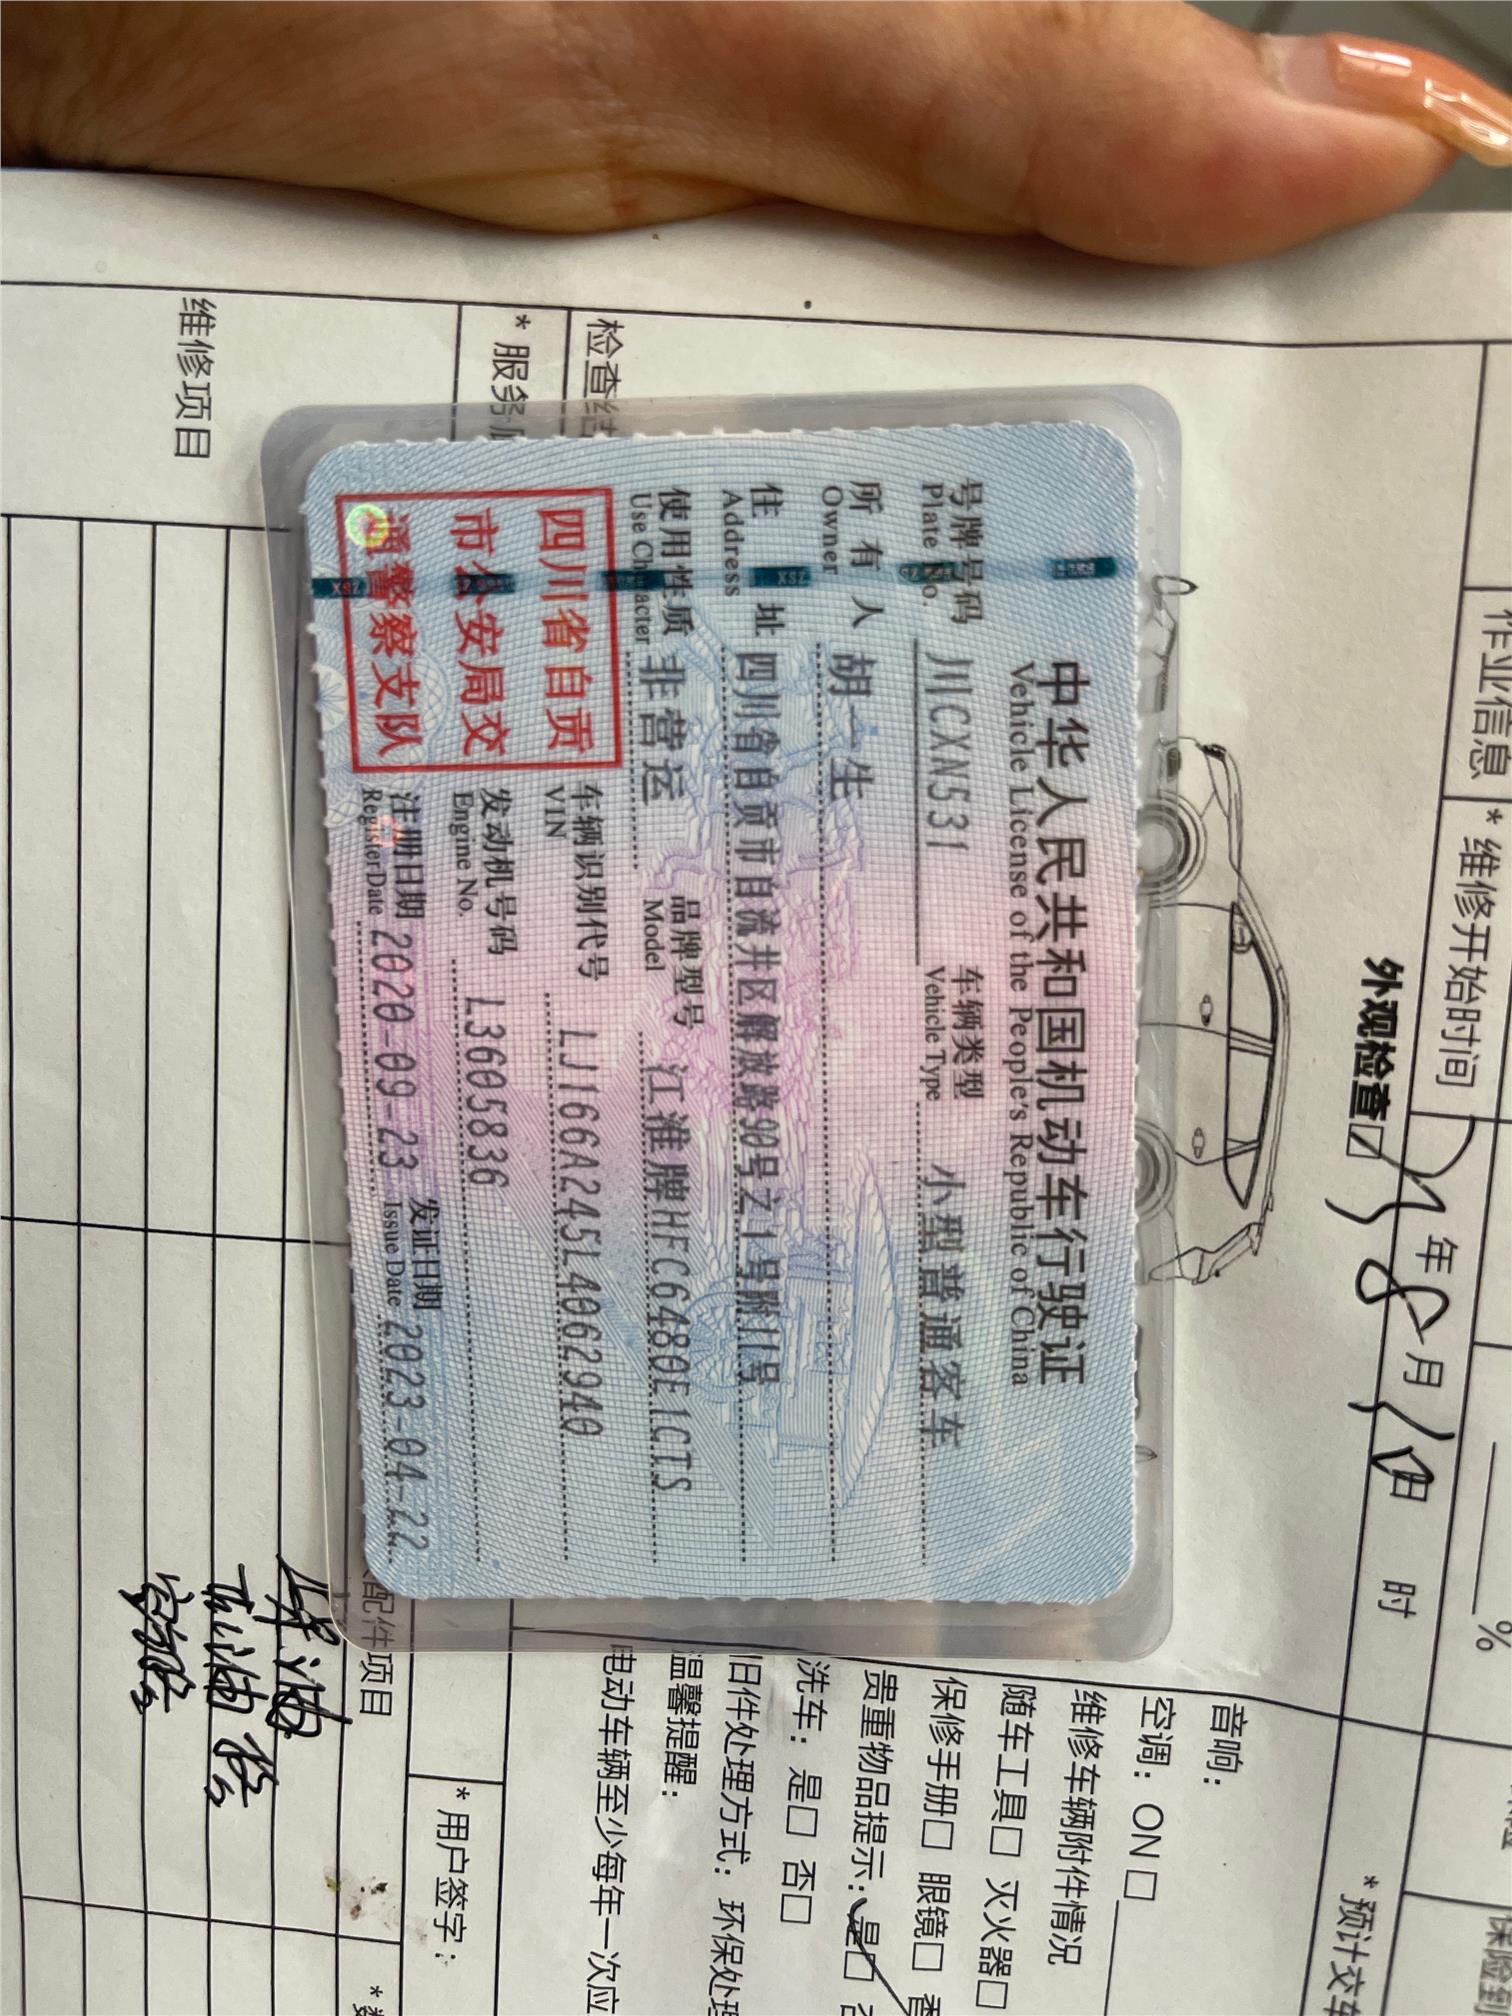 中华人民共和国机动车行驶证
Vehicle License of the People's Republic of China
号牌号码 川CXN531 车辆类型 小型普通客车
Plate No. Vehicle Type
所有人 胡一生
Owner
住址 四川省自贡市自流井区解放路90号之1号附11号
Address
使用性质 非营运 品牌型号 江淮牌HFC6480E1CTS
Use Character Model
四川省自贡
市公安局交
通警察支队
车辆识别代号 LJ166A245L4062940
VIN
发动机号码 L3605836
Engine No.
注册日期 2020-09-23 发证日期 2023-04-22
Register Date Issue Date
作业信息
* 维修开始时间
年8月 日 时
* 预计交车
外观检查
%
音响：
空调：ON
维修车辆附件情况
随车工具 灭火器
保修手册 眼镜
贵重物品提示：是
洗车：是 否
旧件处理方式：环保处理
温馨提醒：
电动车辆至少每年一次应
检查结
* 服务
* 用户签字：
维修项目
配件项目